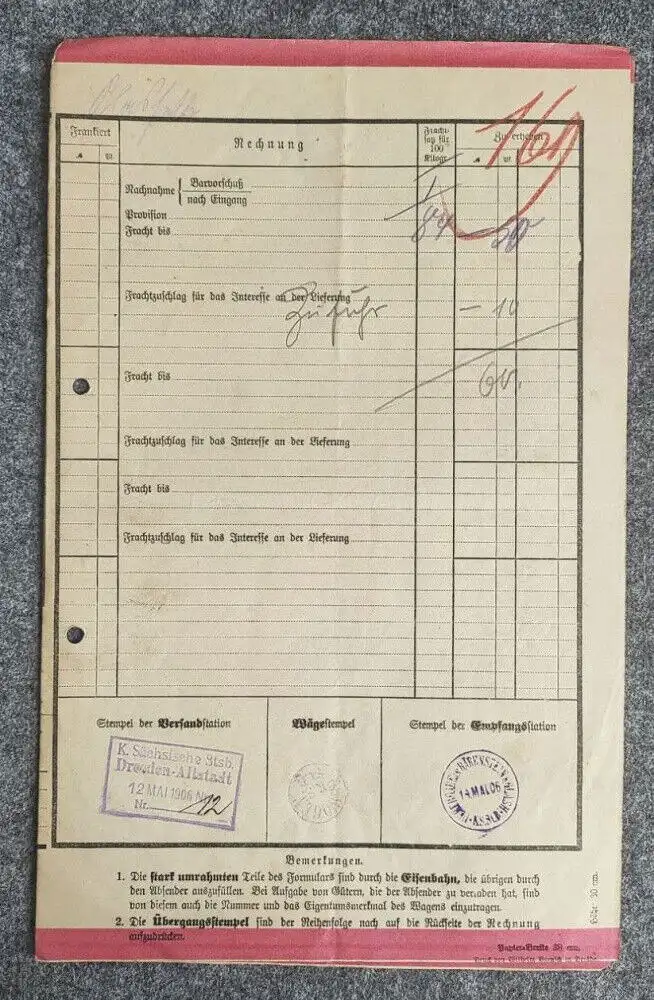 Frankiert
Rechnung
Frachtsatz für 100 Kilogr.
Zu erheben
Nachnahme { Barvorschuß
nach Eingang
Provision
Fracht bis
84 50
Frachtzuschlag für das Interesse an der Lieferung
Zufuhr — 10
60.
Fracht bis
Frachtzuschlag für das Interesse an der Lieferung
Fracht bis
Frachtzuschlag für das Interesse an der Lieferung
Stempel der Versandstation
Wägestempel
Stempel der Empfangsstation
K. Sächsische Stsb.
Dresden-Altstadt
12 MAI 1906
Nr. 12
14 MAI. 06
Bemerkungen.
1. Die stark umrahmten Teile des Formulars sind durch die Eisenbahn, die übrigen durch
den Absender auszufüllen. Bei Aufgabe von Gütern, die der Absender zu verladen hat, sind
von diesem auch die Nummer und das Eigentumsmerkmal des Wagens einzutragen.
2. Die Übergangsstempel sind der Reihenfolge nach auf die Rückseite der Rechnung
aufzudrücken.
Papier-Breite 38 cm.